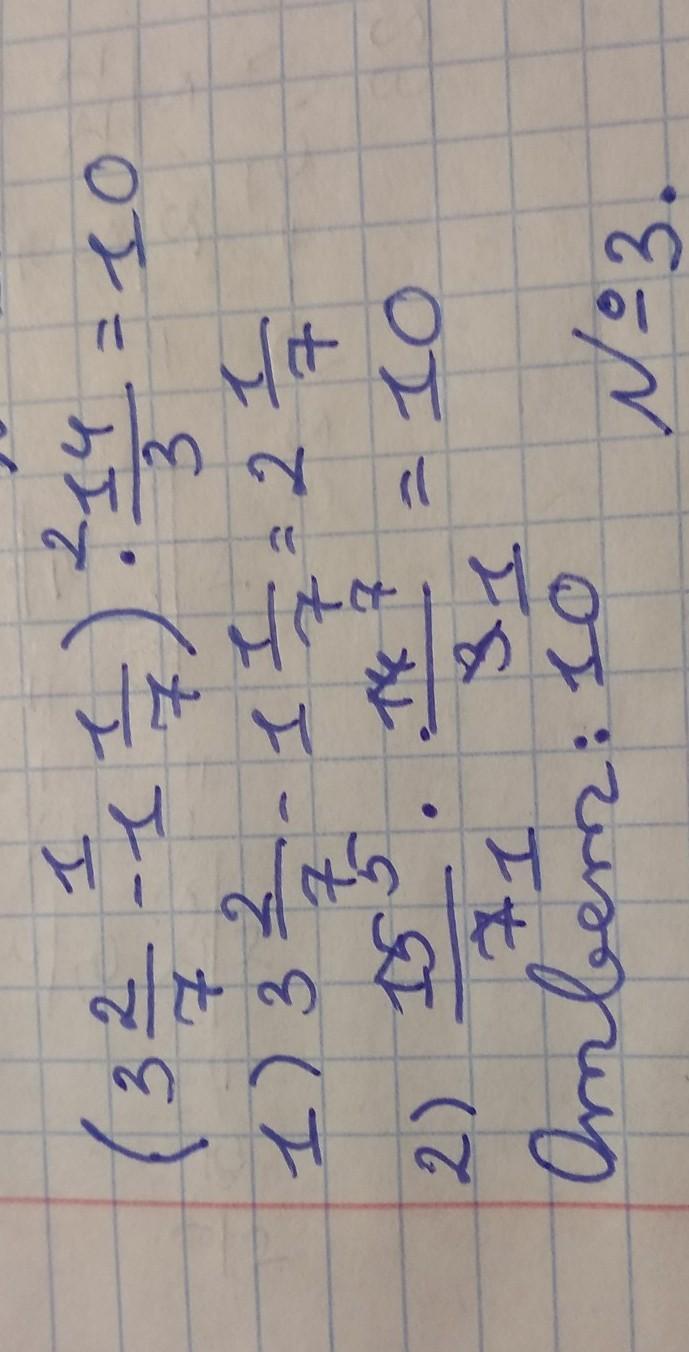 (3 2/7 - 1 1/7) · 14/3 = 10
1) 3 2/7 - 1 1/7 = 2 1/7
2) 15/7 · 14/3 = 10
Ответ: 10
№3.